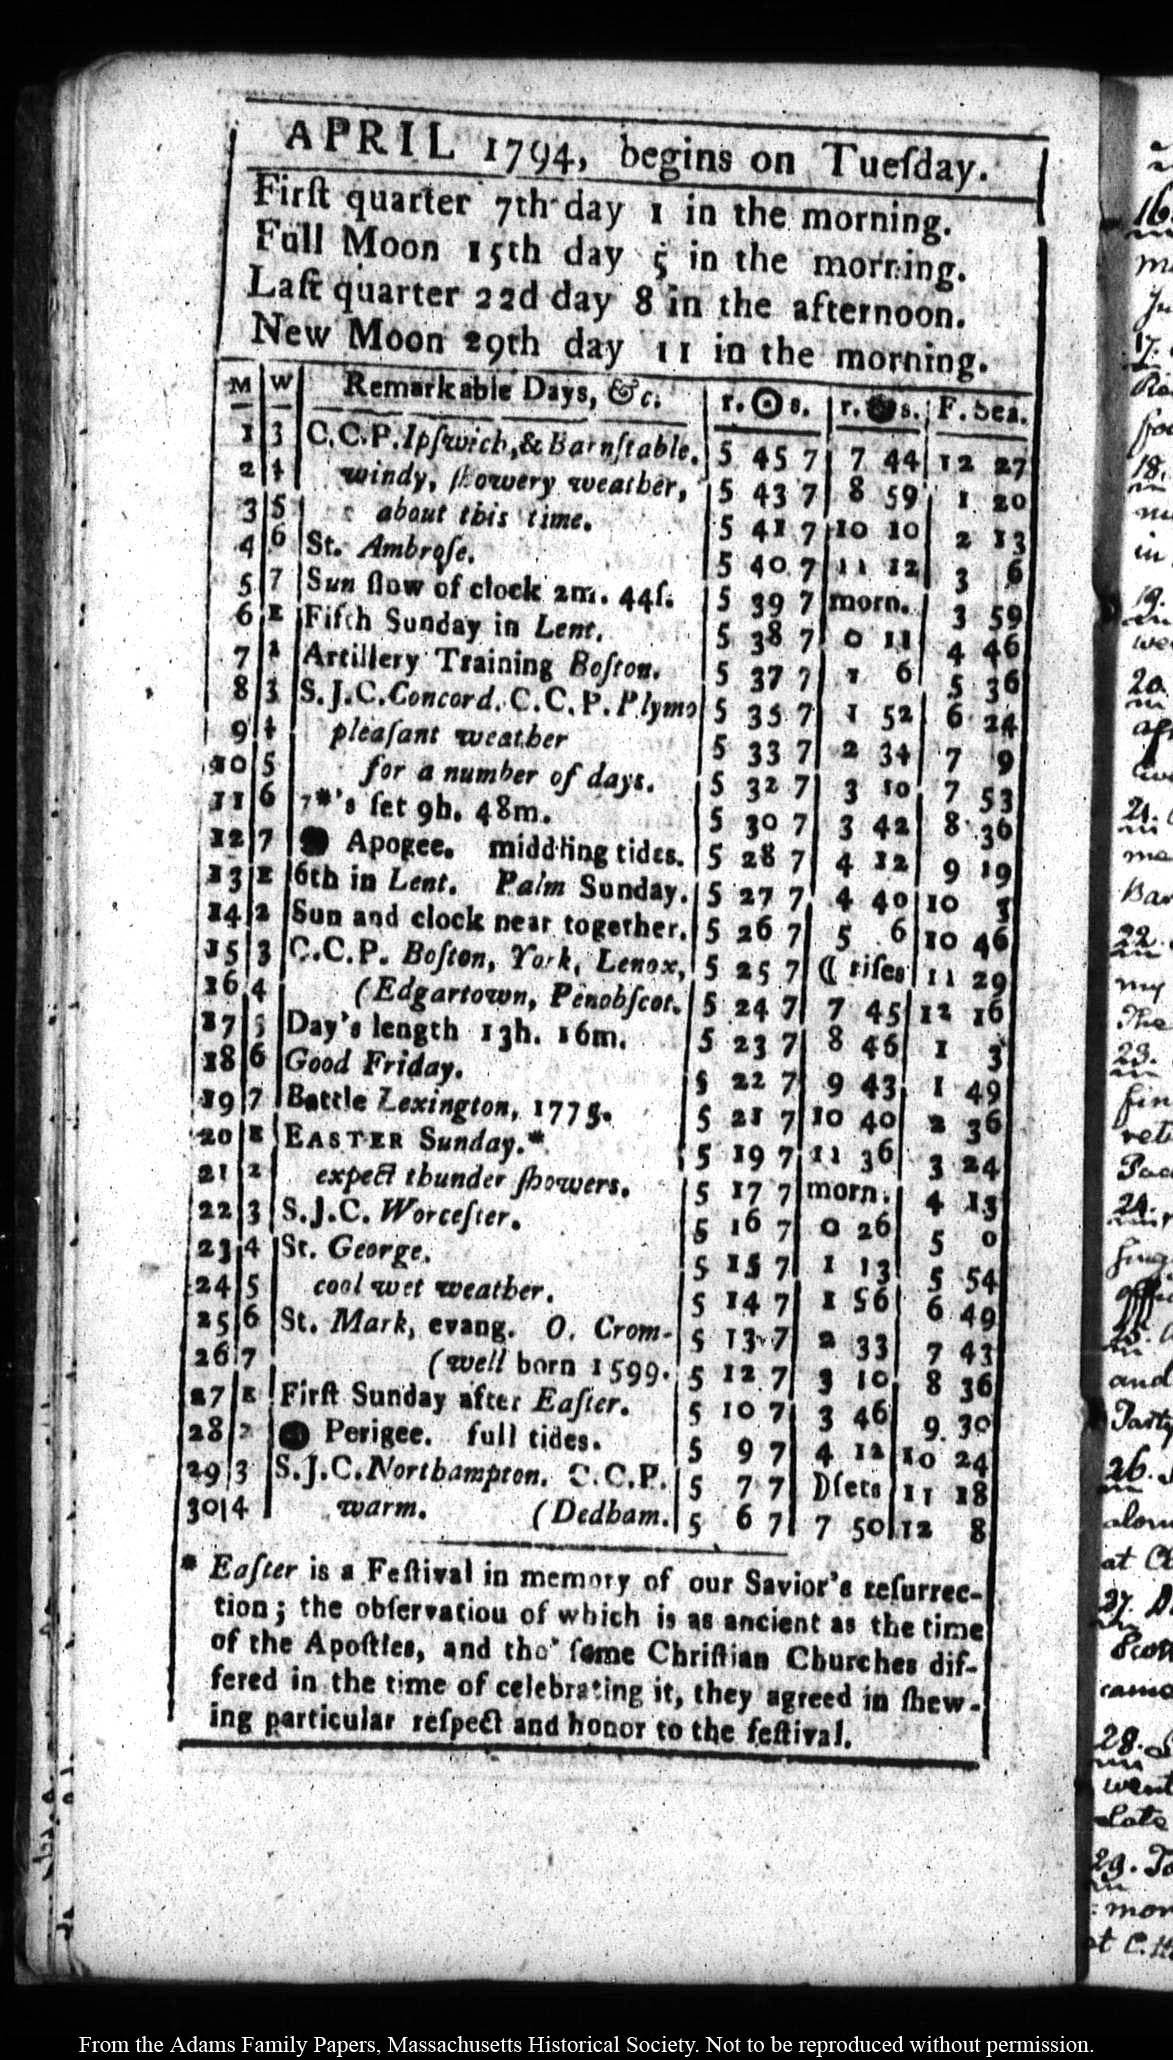 APRIL 1794, begins on Tueſday.
Firſt quarter 7th day 1 in the morning.
Full Moon 15th day 5 in the morning.
Laſt quarter 22d day 8 in the afternoon.
New Moon 29th day 11 in the morning.
M W Remarkable Days, &c. r. ☉ s. r. ● s. F. Sea.
1 3 C.C.P. Ipſwich, & Barnſtable. 5 45 7 7 44 12 27
2 4 windy, ſhowery weather, 5 43 7 8 59 1 20
3 5 about this time. 5 41 7 10 10 2 13
4 6 St. Ambroſe. 5 40 7 11 12 3 6
5 7 Sun ſlow of clock 2m. 44ſ. 5 39 7 morn. 3 59
6 E Fifth Sunday in Lent. 5 38 7 0 11 4 46
7 2 Artillery Training Boſton. 5 37 7 1 6 5 36
8 3 S.J.C. Concord. C.C.P. Plymo 5 35 7 1 52 6 24
9 4 pleaſant weather 5 33 7 2 34 7 9
10 5 for a number of days. 5 32 7 3 10 7 53
11 6 7*'s ſet 9h. 48m. 5 30 7 3 42 8 36
12 7 ● Apogee. middling tides. 5 28 7 4 12 9 19
13 E 6th in Lent. Palm Sunday. 5 27 7 4 40 10
14 2 Sun and clock near together. 5 26 7 5 6 10 46
15 3 C.C.P. Boſton, York, Lenox, 5 25 7 ☾ riſes 11 29
16 4 (Edgartown, Penobſcot. 5 24 7 7 45 12 16
17 5 Day's length 13h. 16m. 5 23 7 8 46 1 3
18 6 Good Friday. 5 22 7 9 43 1 49
19 7 Battle Lexington, 1775. 5 21 7 10 40 2 36
20 E EASTER Sunday.* 5 19 7 11 36 3 24
21 2 expect thunder ſhowers. 5 17 7 morn. 4 13
22 3 S.J.C. Worceſter. 5 16 7 0 26 5 0
23 4 St. George. 5 15 7 1 13 5 54
24 5 cool wet weather. 5 14 7 1 56 6 49
25 6 St. Mark, evang. O. Crom- 5 13 7 2 33 7 43
26 7 (well born 1599. 5 12 7 3 10 8 36
27 E Firſt Sunday after Eaſter. 5 10 7 3 46 9 30
28 2 ● Perigee. full tides. 5 9 7 4 12 10 24
29 3 S.J.C. Northampton. C.C.P. 5 7 7 ☽ ſets 11 18
30 4 warm. (Dedham. 5 6 7 7 50 12 8
* Eaſter is a Feſtival in memory of our Savior's reſurrec-
tion; the obſervatiou of which is as ancient as the time
of the Apoſtles, and tho' ſome Chriſtian Churches dif-
fered in the time of celebrating it, they agreed in ſhew-
ing particular reſpect and honor to the feſtival.
From the Adams Family Papers, Massachusetts Historical Society. Not to be reproduced without permission.